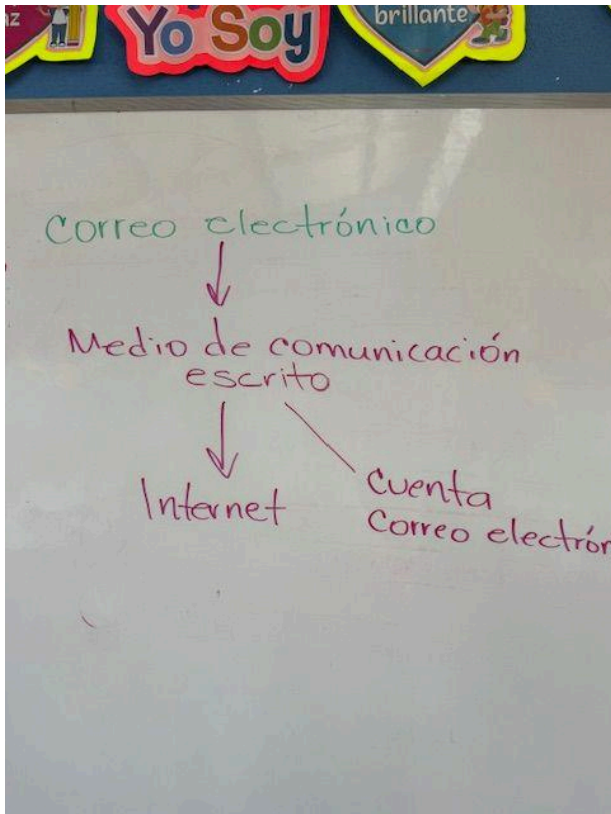 az
Yo Soy
brillante
Correo electrónico
Medio de comunicación
escrito
Internet
cuenta
Correo electrón